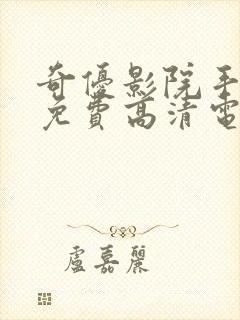 奇優影院手
免費高清電
盧嘉麗